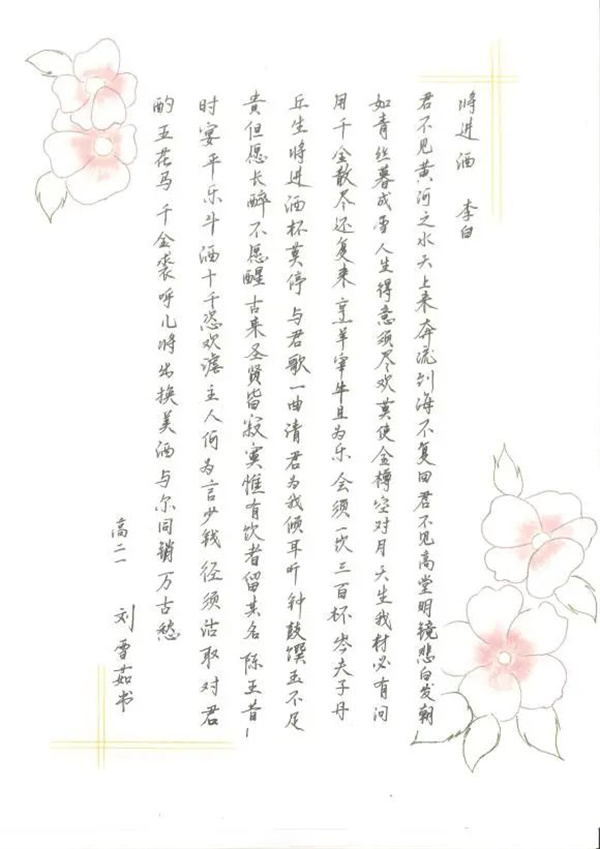 将进酒 李白
君不见黄河之水天上来奔流到海不复回君不见高堂明镜悲白发朝
如青丝暮成雪人生得意须尽欢莫使金樽空对月天生我材必有问
用千金散尽还复来烹羊宰牛且为乐会须一饮三百杯岑夫子丹
丘生将进酒杯莫停与君歌一曲请君为我倾耳听钟鼓馔玉不足
贵但愿长醉不愿醒古来圣贤皆寂寞惟有饮者留其名陈王昔
时宴平乐斗酒十千恣欢谑主人何为言少钱径须沽取对君
酌五花马千金裘呼儿将出换美酒与尔同销万古愁
高二一 刘雪茹书